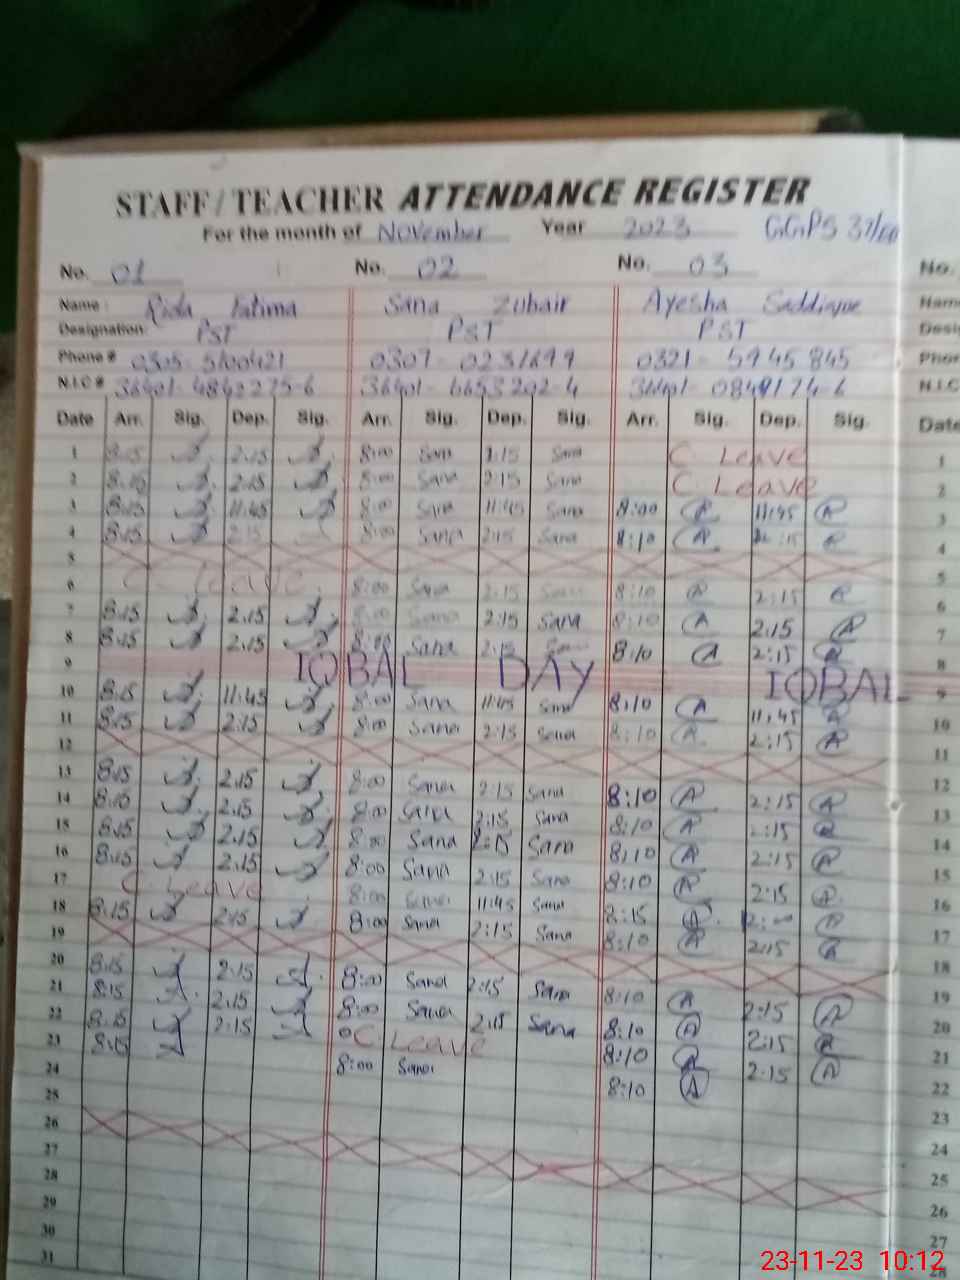 STAFF / TEACHER ATTENDANCE REGISTER
For the month of November Year 2023 GGPS 37/
No. 01 No. 02 No. 03 No.
Name: Rida Fatima Sana Zubair Ayesha Saddique
Designation: PST PST PST
Phone # 0305- 5100421 0307- 0231699 0321- 5945845
N.I.C # 36401-4842275-6 36401-6653202-4 36401- 0849174-6 N.I.C
Date Arr. Sig. Dep. Sig. Arr. Sig. Dep. Sig. Arr. Sig. Dep. Sig. Date
1 8:15 2:15 8:00 Sana 2:15 Sana C. Leave 1
2 8:15 2:15 8:00 Sana 2:15 Sana C. Leave 2
3 8:15 11:45 8:00 Sana 11:45 Sana 8:00 A 11:45 A 3
4 8:15 2:15 8:00 Sana 2:15 Sana 8:10 A 2:15 A 4
5 5
6 C. Leave 8:00 Sana 2:15 Sana 8:10 A 2:15 A 6
7 8:15 2:15 8:00 Sana 2:15 Sana 8:10 A 2:15 A 7
8 8:15 2:15 8:00 Sana 2:15 Sana 8:10 A 2:15 A 8
9 IQBAL DAY IQBAL 9
10 8:15 11:45 8:00 Sana 11:45 Sana 8:10 A 11:45 A 10
11 8:15 2:15 8:00 Sana 2:15 Sana 8:10 A 2:15 A 11
12 12
13 8:15 2:15 8:00 Sana 2:15 Sana 8:10 A 2:15 A 13
14 8:15 2:15 8:00 Sana 2:15 Sana 8:10 A 2:15 A 14
15 8:15 2:15 8:00 Sana 2:15 Sana 8:10 A 2:15 A 15
16 8:15 2:15 8:00 Sana 2:15 Sana 8:10 A 2:15 A 16
17 C. Leave 8:00 Sana 11:45 Sana 8:15 A 12:00 A 17
18 8:15 2:15 8:00 Sana 2:15 Sana 8:10 A 2:15 A 18
19 19
20 8:15 2:15 8:00 Sana 2:15 Sana 8:10 A 2:15 A 20
21 8:15 2:15 8:00 Sana 2:15 Sana 8:10 A 2:15 A 21
22 8:15 2:15 C. Leave 8:10 A 2:15 A 22
23 8:15 8:00 Sana 8:10 A 23
24 24
25 25
26 26
27 27
28 28
29
30
31
23-11-23 10:12